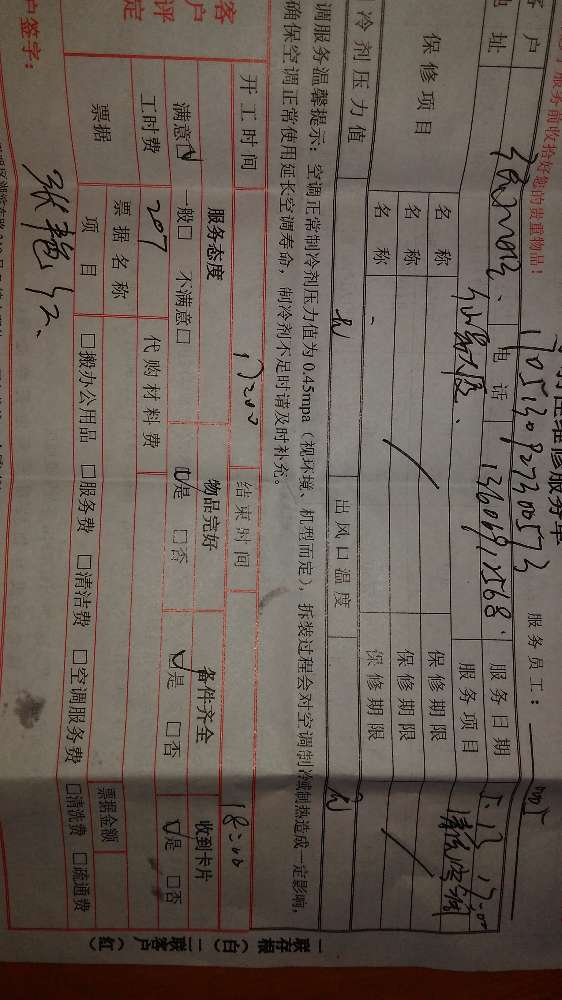 前收拾好您的贵重物品!
性维修服务单
服务员工:
客户 电话 1705130927300573 服务日期 5.13 17:00
地址 服务项目
保修项目 名称 保修期限
名称 保修期限
名称 保修期限
冷剂压力值 出风口温度
调服务温馨提示: 空调正常制冷剂压力值为0.45mpa (视环境、机型而定), 拆装过程会对空调制冷制热造成一定影响,
确保空调正常使用延长空调寿命, 制冷剂不足时请及时补充。
开工时间 17:00 结束时间 18:00
客户评定 服务态度 物品完好 备件齐全 收到卡片
满意☑ 一般□ 不满意□ ☑是 □否 ☑是 □否 ☑是 □否
工时费 207 代购材料费
票据 票据名称 票据金额
项目 □搬办公用品 □服务费 □清洁费 □空调服务费 □清洗费 □疏通费
户签字: 张艳红
一联存根(白) 二联客户(红)